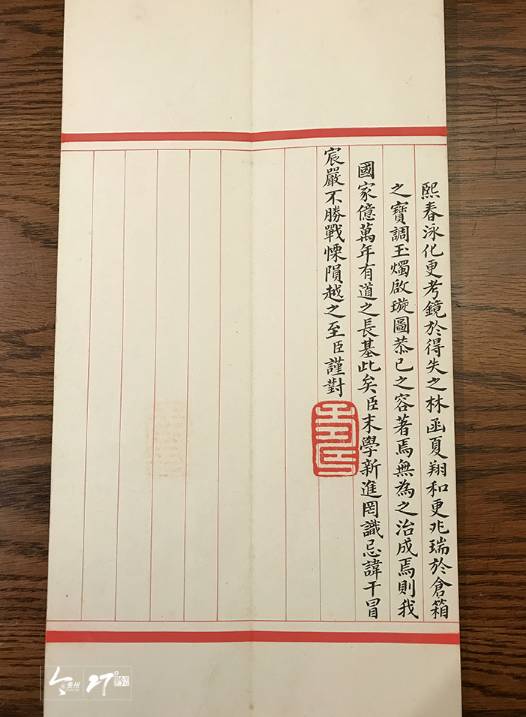 熙春泳化更考鏡於得失之林函夏翔和更兆瑞於倉箱
之寶調玉燭啟璇圖恭己之容著焉無為之治成焉則我
國家億萬年有道之長基此矣臣末學新進罔識忌諱干冒
宸嚴不勝戰慄隕越之至臣謹對
27°